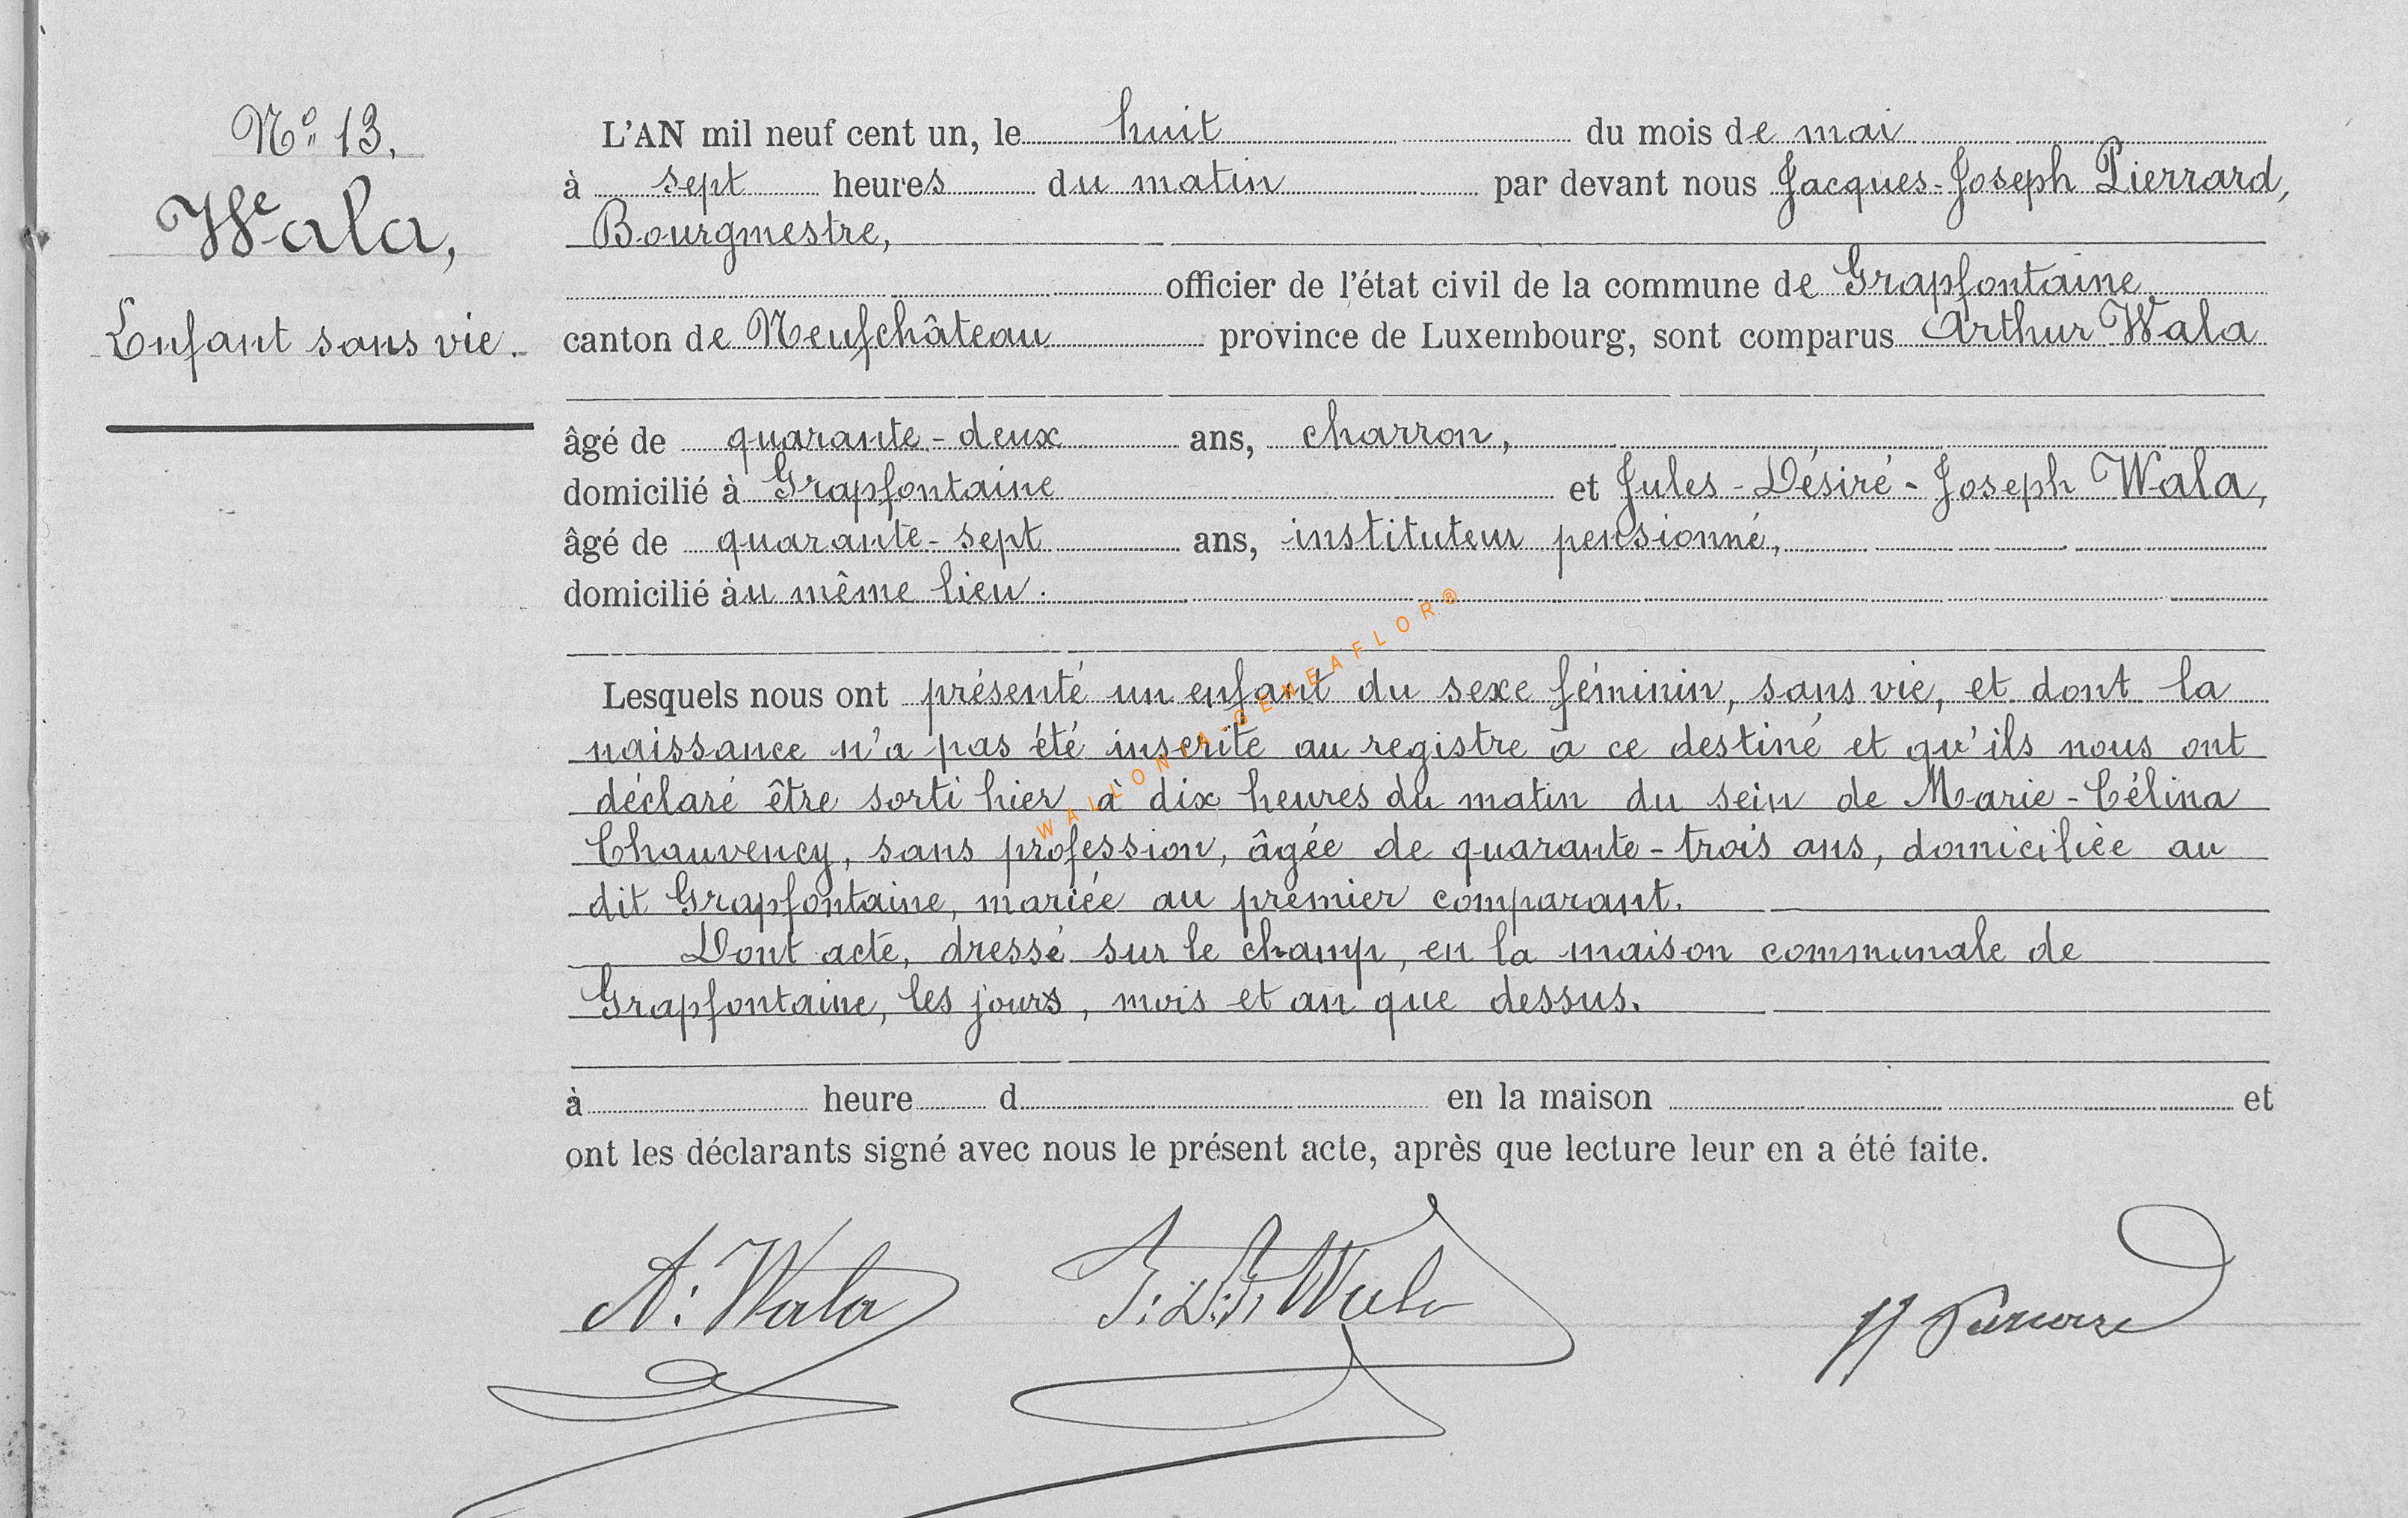 Nº 13.
Wala,
Enfant sans vie.
L'AN mil neuf cent un, le huit du mois de mai
à sept heures du matin par devant nous Jacques-Joseph Pierrard,
Bourgmestre,
officier de l'état civil de la commune de Grapfontaine
canton de Neufchâteau province de Luxembourg, sont comparus Arthur Wala
âgé de quarante-deux ans, charron,
domicilié à Grapfontaine et Jules-Désiré-Joseph Wala,
âgé de quarante-sept ans, instituteur pensionné,
domicilié àu même lieu.
Lesquels nous ont présenté un enfant du sexe féminin, sans vie, et dont la
naissance n'a pas été inscrite au registre à ce destiné et qu'ils nous ont
déclaré être sorti hier à dix heures du matin du sein de Marie-Célina
Chauvency, sans profession, âgée de quarante-trois ans, domiciliée au
dit Grapfontaine, mariée au premier comparant.
Dont acte, dressé sur le champ, en la maison communale de
Grapfontaine, les jours, mois et an que dessus.
à heure d en la maison et
ont les déclarants signé avec nous le présent acte, après que lecture leur en a été faite.
A: Wala J:D:J: Wala JJ Pierrard
WALLONIA-GENEAFLOR®